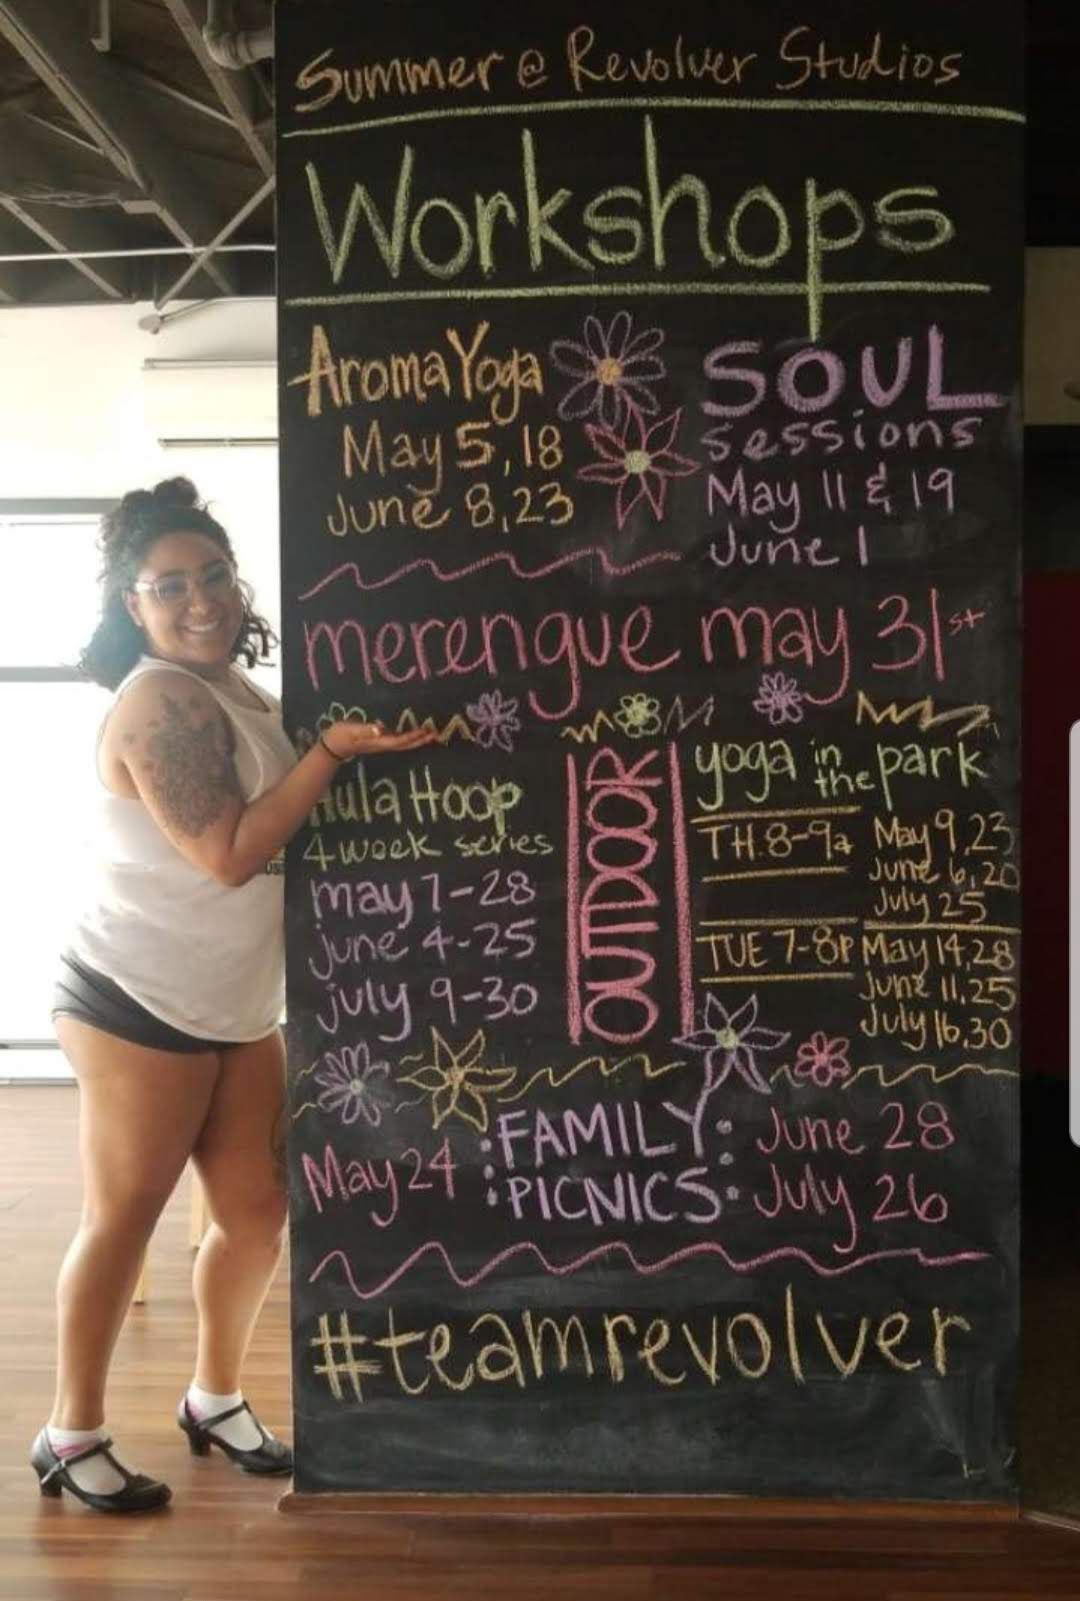 Summer @ Revolver Studios
Workshops
Aroma Yoga
May 5, 18
June 8, 23
SOUL
sessions
May 11 & 19
June 1
merengue may 31st
Hula Hoop
4 week series
may 7-28
june 4-25
july 9-30
OUTDOOR
yoga in the park
TH. 8-9a
May 9, 23
June 6, 20
July 25
TUE 7-8P
May 14, 28
June 11, 25
July 16, 30
May 24
FAMILY
PICNICS
June 28
July 26
#teamrevolver